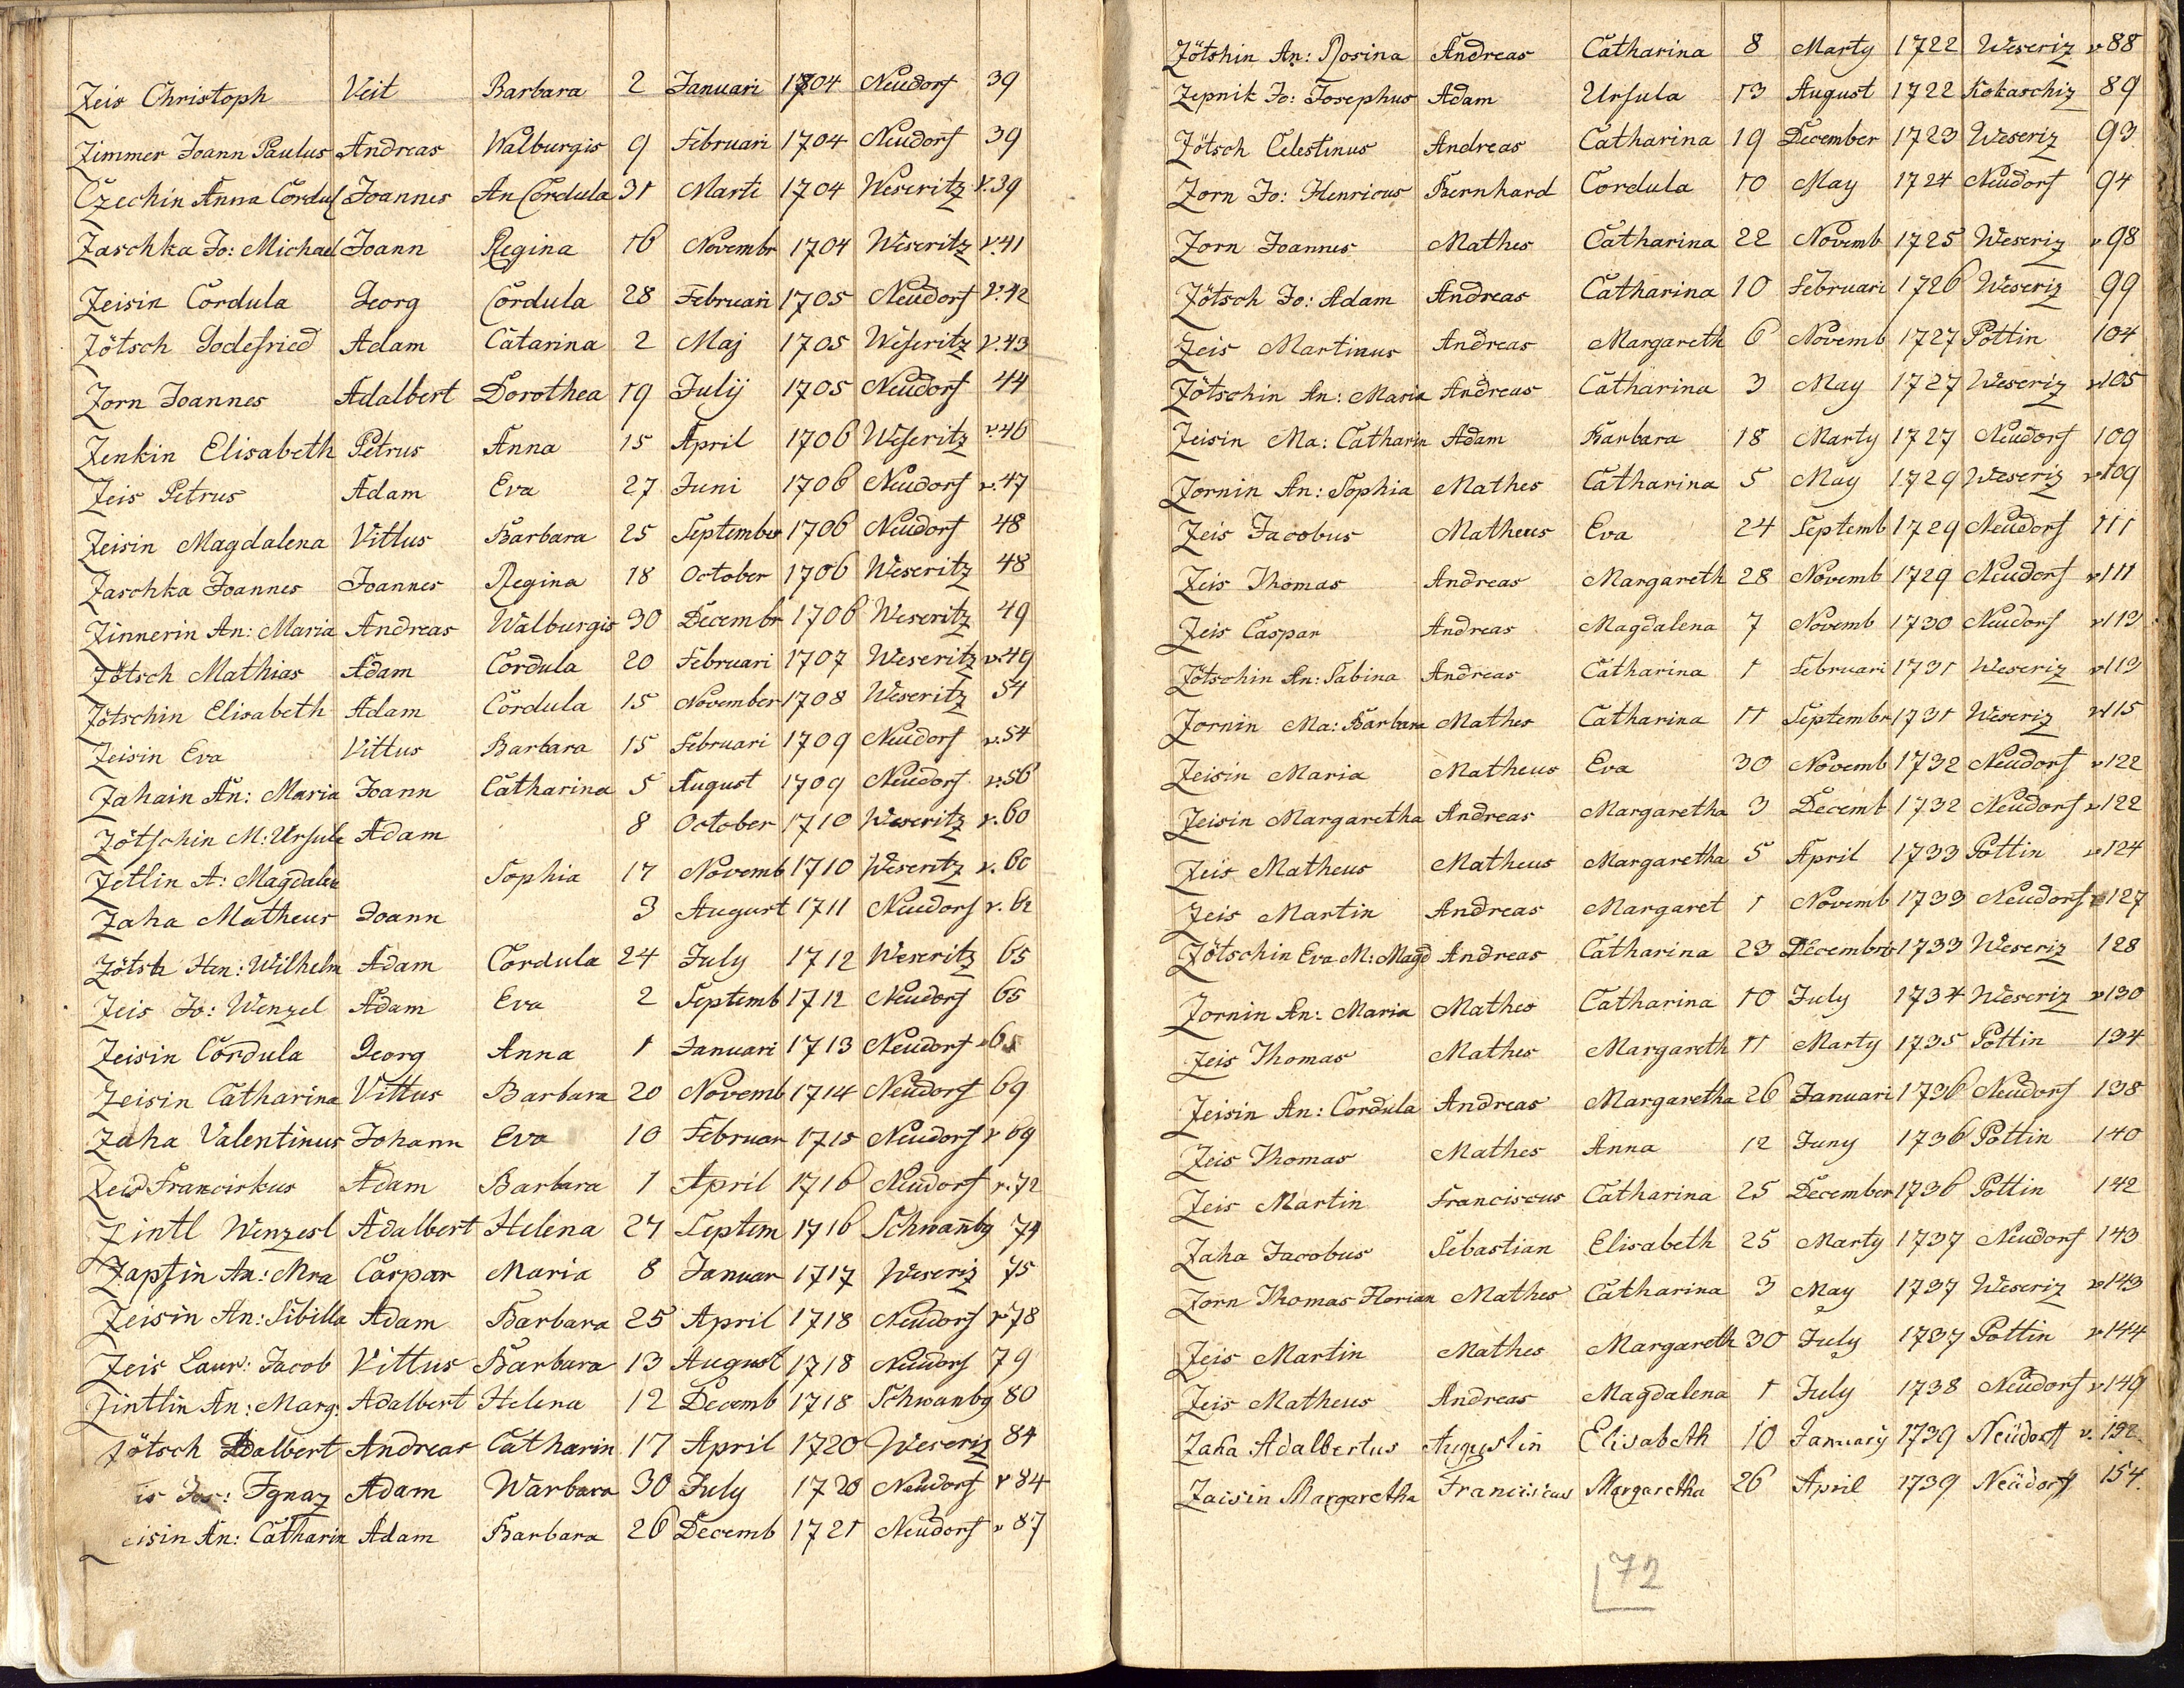 Zeis Christoph Veit Barbara 2 Januari 1704 Neudorf 39
Zimmer Joann Paulus Andreas Walburgis 9 Februari 1704 Neudorf 39
Czechin Anna Cordul Joannes An Cordula 31 Marti 1704 Weseritz v.39
Zaschka Jo: Michael Joann Regina 16 Novembr 1704 Weseritz v.41
Zeisin Cordula Georg Cordula 28 Februari 1705 Neudorf v.42
Zötsch Godefried Adam Catarina 2 Maj 1705 Weseritz v.43
Zorn Joannes Adalbert Dorothea 19 Julij 1705 Neudorf 44
Zenkin Elisabeth Petrus Anna 15 April 1706 Weseritz v.46
Zeis Petrus Adam Eva 27 Juni 1706 Neudorf v.47
Zeisin Magdalena Vittus Barbara 25 September 1706 Neudorf 48
Zaschka Joannes Joannes Regina 18 October 1706 Weseritz 48
Zinnerin An: Maria Andreas Walburgis 30 Decembr 1706 Weseritz 49
Zötsch Mathias Adam Cordula 20 Februari 1707 Weseritz v.49
Zötschin Elisabeth Adam Cordula 15 November 1708 Weseritz 54
Zeisin Eva Vittus Barbara 15 Februari 1709 Neudorf v.54
Zahain An: Maria Joann Catharina 5 August 1709 Neudorf v.56
Zötschin M: Ursula Adam 8 October 1710 Weseritz v.60
Zetlin A: Magdalen Sophia 17 Novemb 1710 Weseritz v.60
Zaha Matheus Joann 3 August 1711 Neudorf v.62
Zötsch Hen: Wilhelm Adam Cordula 24 July 1712 Weseritz 65
Zeis Jo: Wenzel Adam Eva 2 Septemb 1712 Neudorf 65
Zeisin Cordula Georg Anna 1 Januari 1713 Neudorf
Zeisin Catharina Vittus Barbara 20 Novemb 1714 Neudorf 69
Zaha Valentinus Johann Eva 10 Februar 1715 Neudorf v 69
Zeis Franciskus Adam Barbara 1 April 1716 Neudorf v.72
Zintl Wenzesl Adalbert Helena 27 Septem 1716 Schwan̄bg 74
Zapfin An: Mra Caspar Maria 8 Januar 1717 Weseriz 75
Zeisin An: Sibilla Adam Barbara 25 April 1718 Neudorf v 78
Zeis Laur: Jacob Vittus Barbara 13 August 1718 Neudorf 79
Zintlin An: Marg: Adalbert Helena 12 Decemb 1718 Schwanbg 80
Zötsch Adalbert Andreas Catharin 17 April 1720 Weseriz 84
is Jos: Ignaz Adam Warbara 30 July 1720 Neudorf v 84
eisin An: Catharin Adam Barbara 26 Decemb 1721 Neudorf v 87
Zötshin An: Rosina Andreas Catharina 8 Marty 1722 Weseriz v 88
Zepnik Jo: Josephus Adam Ursula 13 August 1722 Kokaschiz 89
Zötsch Celestinus Andreas Catharina 19 December 1723 Weseriz 93
Zorn Jo: Henricus Bernhard Cordula 10 May 1724 Neudorf 94
Zorn Joannes Mathes Catharina 22 Novemb 1725 Weseriz v 98
Zötsch Jo: Adam Andreas Catharina 10 Februari 1726 Weseriz 99
Zeis Martinus Andreas Margareth 6 Novemb 1727 Pottin 104
Zötschin An: Maria Andreas Catharina 3 May 1727 Weseriz v105
Zeisin Ma: Catharin Adam Barbara 18 Marty 1727 Neudorf 109
Zornin An: Sophia Mathes Catharina 5 May 1729 Weseriz v109
Zeis Jacobus Matheus Eva 24 Septemb 1729 Neudorf 111
Zeis Thomas Andreas Margareth 28 Novemb 1729 Neudorf v111
Zeis Caspar Andreas Magdalena 7 Novemb 1730 Neudorf v113
Zötschin An: Sabina Andreas Catharina 1 Februari 1731 Weseriz v113
Zornin Ma: Barbara Mathes Catharina 11 Septembr 1731 Weseriz v115
Zeisin Maria Matheus Eva 30 Novemb 1732 Neudorf v122
Zeisin Margaretha Andreas Margaretha 3 Decemb 1732 Neudorf v122
Zeis Matheus Matheus Margaretha 5 April 1733 Pottin v124
Zeis Martin Andreas Margaret 1 Novemb 1733 Neudorf v127
Zötschin Eva M: Magd Andreas Catharina 23 Decembris 1733 Weseriz 128
Zornin An: Maria Mathes Catharina 10 July 1734 Weseriz v130
Zeis Thomas Mathes Margareth 11 Marty 1735 Pottin 134
Zeisin An: Cordula Andreas Margaretha 26 Januari 1736 Neudorf 138
Zeis Thomas Mathes Anna 12 Juny 1736 Pottin 140
Zeis Martin Franciscus Catharina 25 December 1736 Pottin 142
Zaha Jacobus Sebastian Elisabeth 25 Marty 1737 Neudorf 143
Zorn Thomas Florian Mathes Catharina 3 May 1737 Weseriz v143
Zeis Martin Mathes Margareth 30 July 1737 Pottin v144
Zeis Matheus Andreas Magdalena 1 July 1738 Neudorf v149
Zaha Adalbertus Augustin Elisabeth 10 January 1739 Neüdorf v. 152
Zaisin Margaretha Franciscus Margaretha 26 April 1739 Neüdorf 154.
72